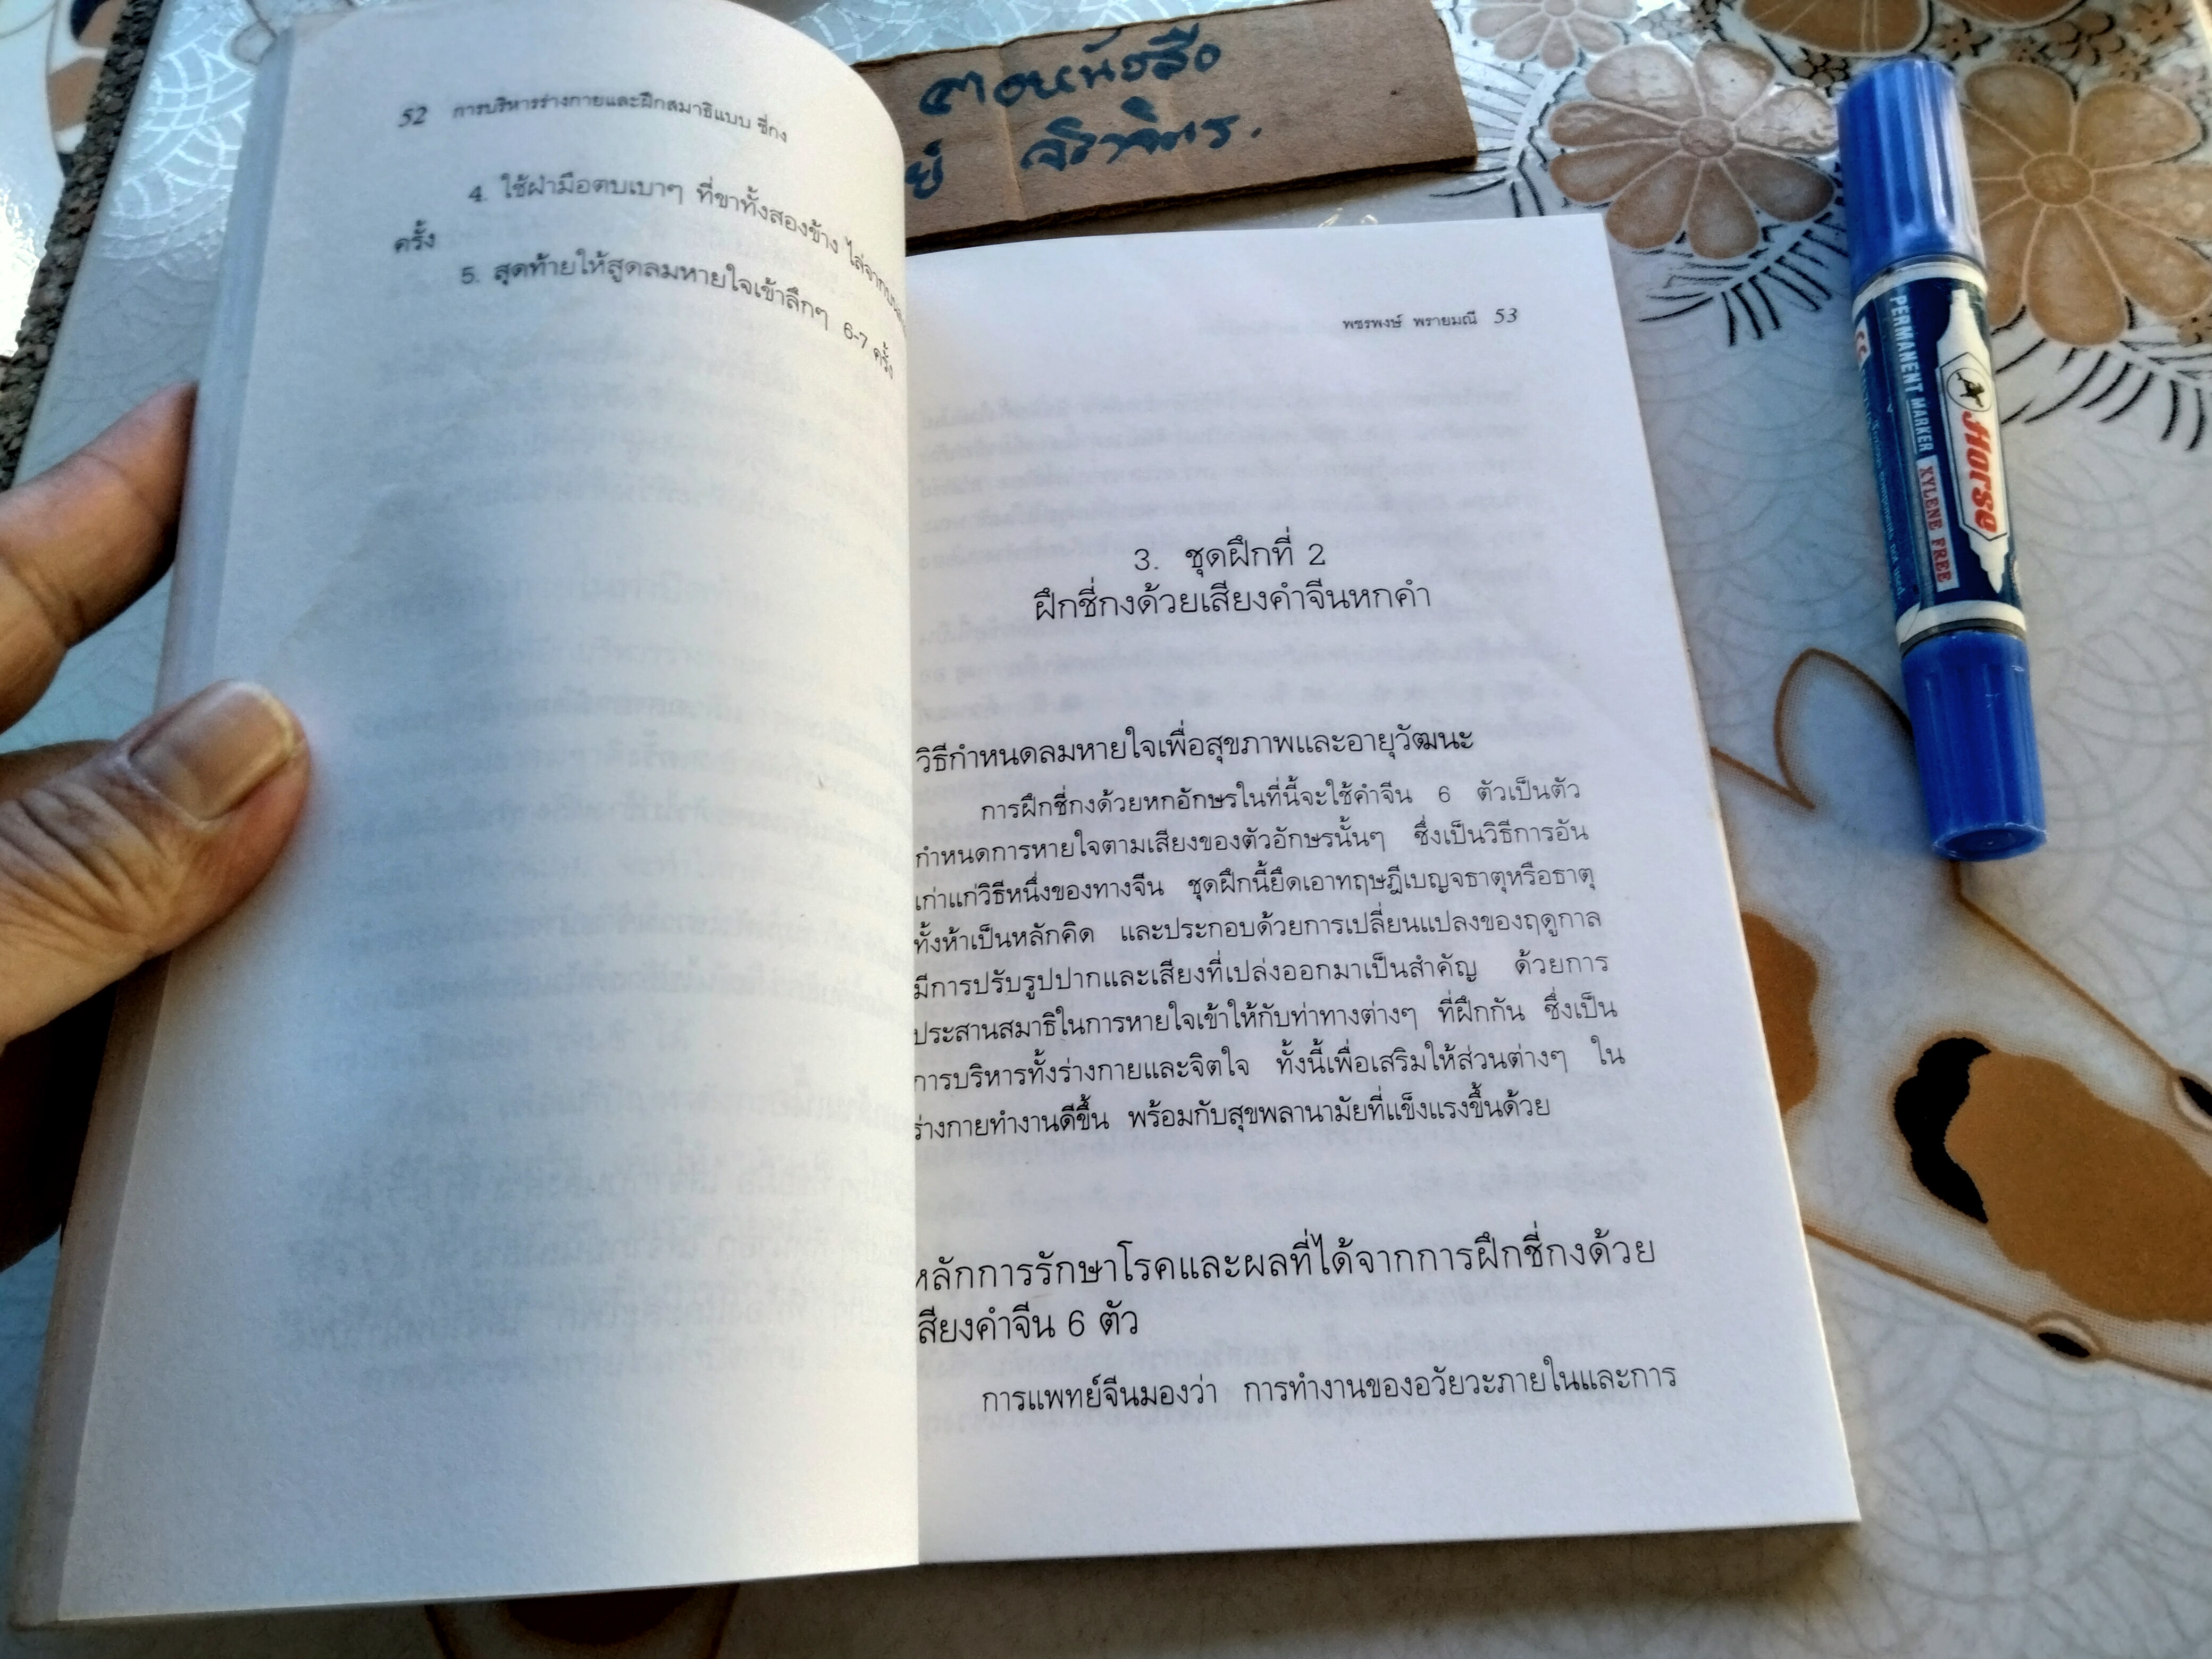 52 การบริหารร่างกายและฝึกสมาธิแบบ ชี่กง
4. ใช้ฝ่ามือตบเบาๆ ที่ขาทั้งสองข้าง ไล่จากบน
ครั้ง
5. สุดท้ายให้สูดลมหายใจเข้าลึกๆ 6-7 ครั้ง
พชรพงษ์ พรายมณี 53
3. ชุดฝึกที่ 2
ฝึกชี่กงด้วยเสียงคำจีนหกคำ
วิธีกำหนดลมหายใจเพื่อสุขภาพและอายุวัฒนะ
การฝึกชี่กงด้วยหกอักษรในที่นี้จะใช้คำจีน 6 ตัวเป็นตัว
กำหนดการหายใจตามเสียงของตัวอักษรนั้นๆ ซึ่งเป็นวิธีการอัน
เก่าแก่วิธีหนึ่งของทางจีน ชุดฝึกนี้ยึดเอาทฤษฎีเบญจธาตุหรือธาตุ
ทั้งห้าเป็นหลักคิด และประกอบด้วยการเปลี่ยนแปลงของฤดูกาล
มีการปรับรูปปากและเสียงที่เปล่งออกมาเป็นสำคัญ ด้วยการ
ประสานสมาธิในการหายใจเข้าให้กับท่าทางต่างๆ ที่ฝึกกัน ซึ่งเป็น
การบริหารทั้งร่างกายและจิตใจ ทั้งนี้เพื่อเสริมให้ส่วนต่างๆ ใน
ร่างกายทำงานดีขึ้น พร้อมกับสุขพลานามัยที่แข็งแรงขึ้นด้วย
หลักการรักษาโรคและผลที่ได้จากการฝึกชี่กงด้วย
เสียงคำจีน 6 ตัว
การแพทย์จีนมองว่า การทำงานของอวัยวะภายในและการ
PERMANENT MARKER XYLENE FREE
Horse